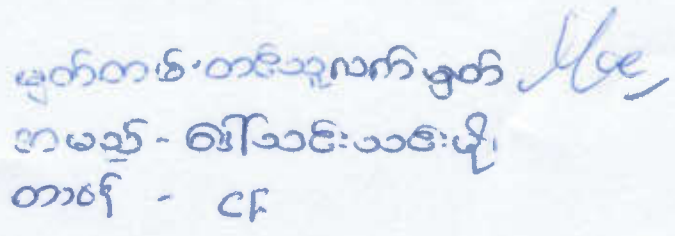 မှတ်တမ်းတင်သူလက်မှတ် Moe
အမည် - ဒေါ်သင်းသင်းမိုး
တာဝန် - ငန်